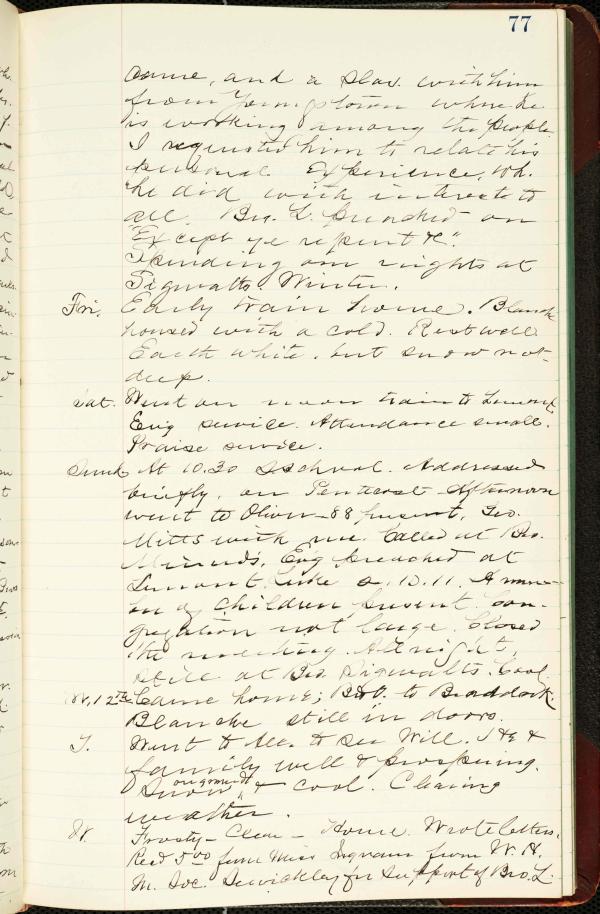 77
came, and a Slav. with him
from Youngstown where he
is working among the people
I requested him to relate his
personal Experience, wh.
he did with interest to
all. Bro. L. preached on
"Except ye repent &c".
Spending our nights at
Sigwalts. Winter.
Fri. Early train home. Blanche
housed with a cold. Rest well
Earth white. but snow not
deep.
Sat. Went on noon train to Lemont
Evg service. Attendance small.
Praise service.
Sund. At 10.30 S. school. Addressed
briefly, on Pentecost. Afternoon
went to Oliver - 88 present. Geo.
Mitts with me. Called at Bro.
Evg preached at
Lemont. Luke 2. 10. 11. A num-
ber of Children present. Con-
gregation not large. Closed
the meeting. All night,
still at Bro. Sigwalts. Cool.
M. 12th Came home; B&O. to Braddock
Blanche still in doors.
T. Went to All. to see Will. He &
family well & prospering.
Snow on ground & cool. Clearing
weather.
W. Frosty - Clear - Home. Wrote letters.
Recd 5.00 from Miss Ingram from W. H.
M. Soc. Sewickley for Support of Bro. L.